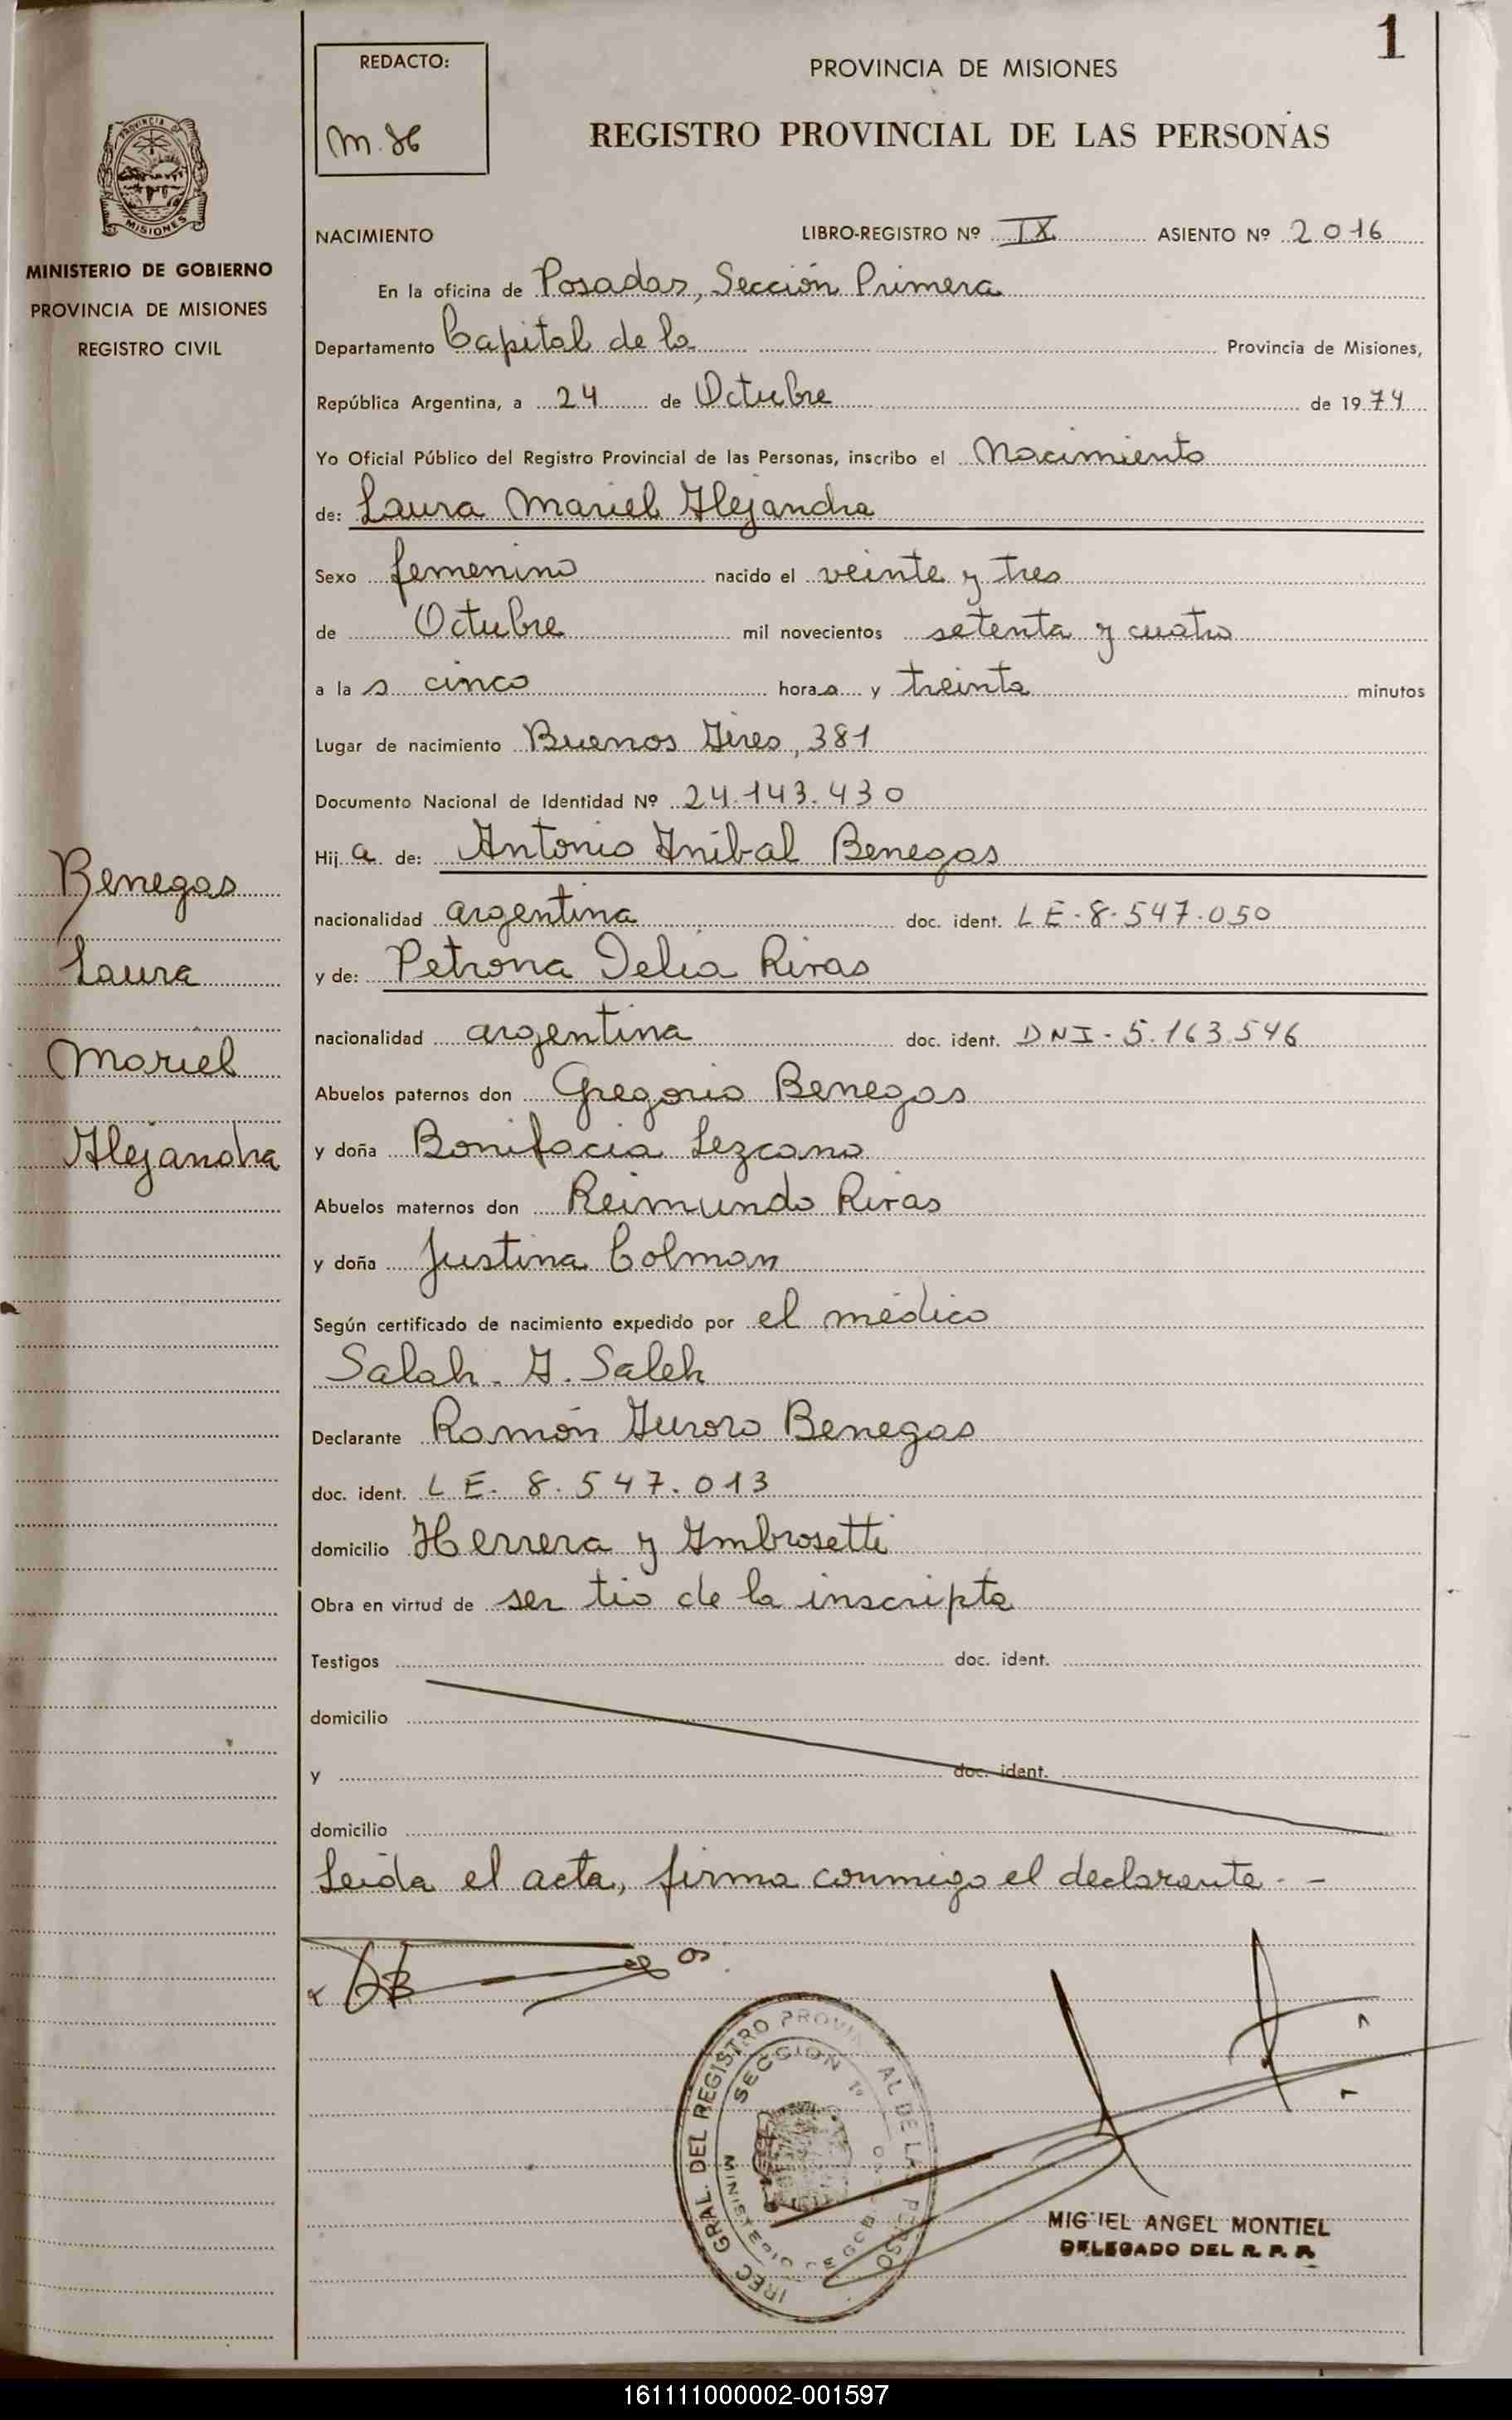 1
REDACTO:
M. H
PROVINCIA DE MISIONES
REGISTRO PROVINCIAL DE LAS PERSONAS
PROVINCIA DE
MISIONES
MINISTERIO DE GOBIERNO
PROVINCIA DE MISIONES
REGISTRO CIVIL
NACIMIENTO LIBRO-REGISTRO Nº IX ASIENTO Nº 2016
En la oficina de Posadas, Sección Primera
Departamento Capital de la Provincia de Misiones,
República Argentina, a 24 de Octubre de 1974
Yo Oficial Público del Registro Provincial de las Personas, inscribo el Nacimiento
de: Laura Mariel Alejandra
Sexo femenino nacido el veinte y tres
de Octubre mil novecientos setenta y cuatro
a las cinco horas y treinta minutos
Lugar de nacimiento Buenos Aires, 381
Documento Nacional de Identidad Nº 24.143.430
Hija de: Antonio Anibal Benegas
nacionalidad argentina doc. ident. LE-8.547.050
y de: Petrona Delia Rivas
nacionalidad argentina doc. ident. DNI-5.163.546
Abuelos paternos don Gregorio Benegas
y doña Bonifacia Lezcano
Abuelos maternos don Reimundo Rivas
y doña Justina Colman
Según certificado de nacimiento expedido por el médico
Salah. A. Saleh
Declarante Ramón Auroro Benegas
doc. ident. LE- 8.547.013
domicilio Herrera y Ambrosetti
Obra en virtud de ser tio de la inscripta
Testigos doc. ident.
domicilio
y doc. ident.
domicilio
Leida el acta, firma conmigo el declarante.-
Benegas
Laura
Mariel
Alejandra
IREC GRAL. DEL REGISTRO PROVIN AL DE LAS PERSO
SECCION 1º
MINISTERIO
MIG IEL ANGEL MONTIEL
DELEGADO DEL R. P. P.
161111000002-001597